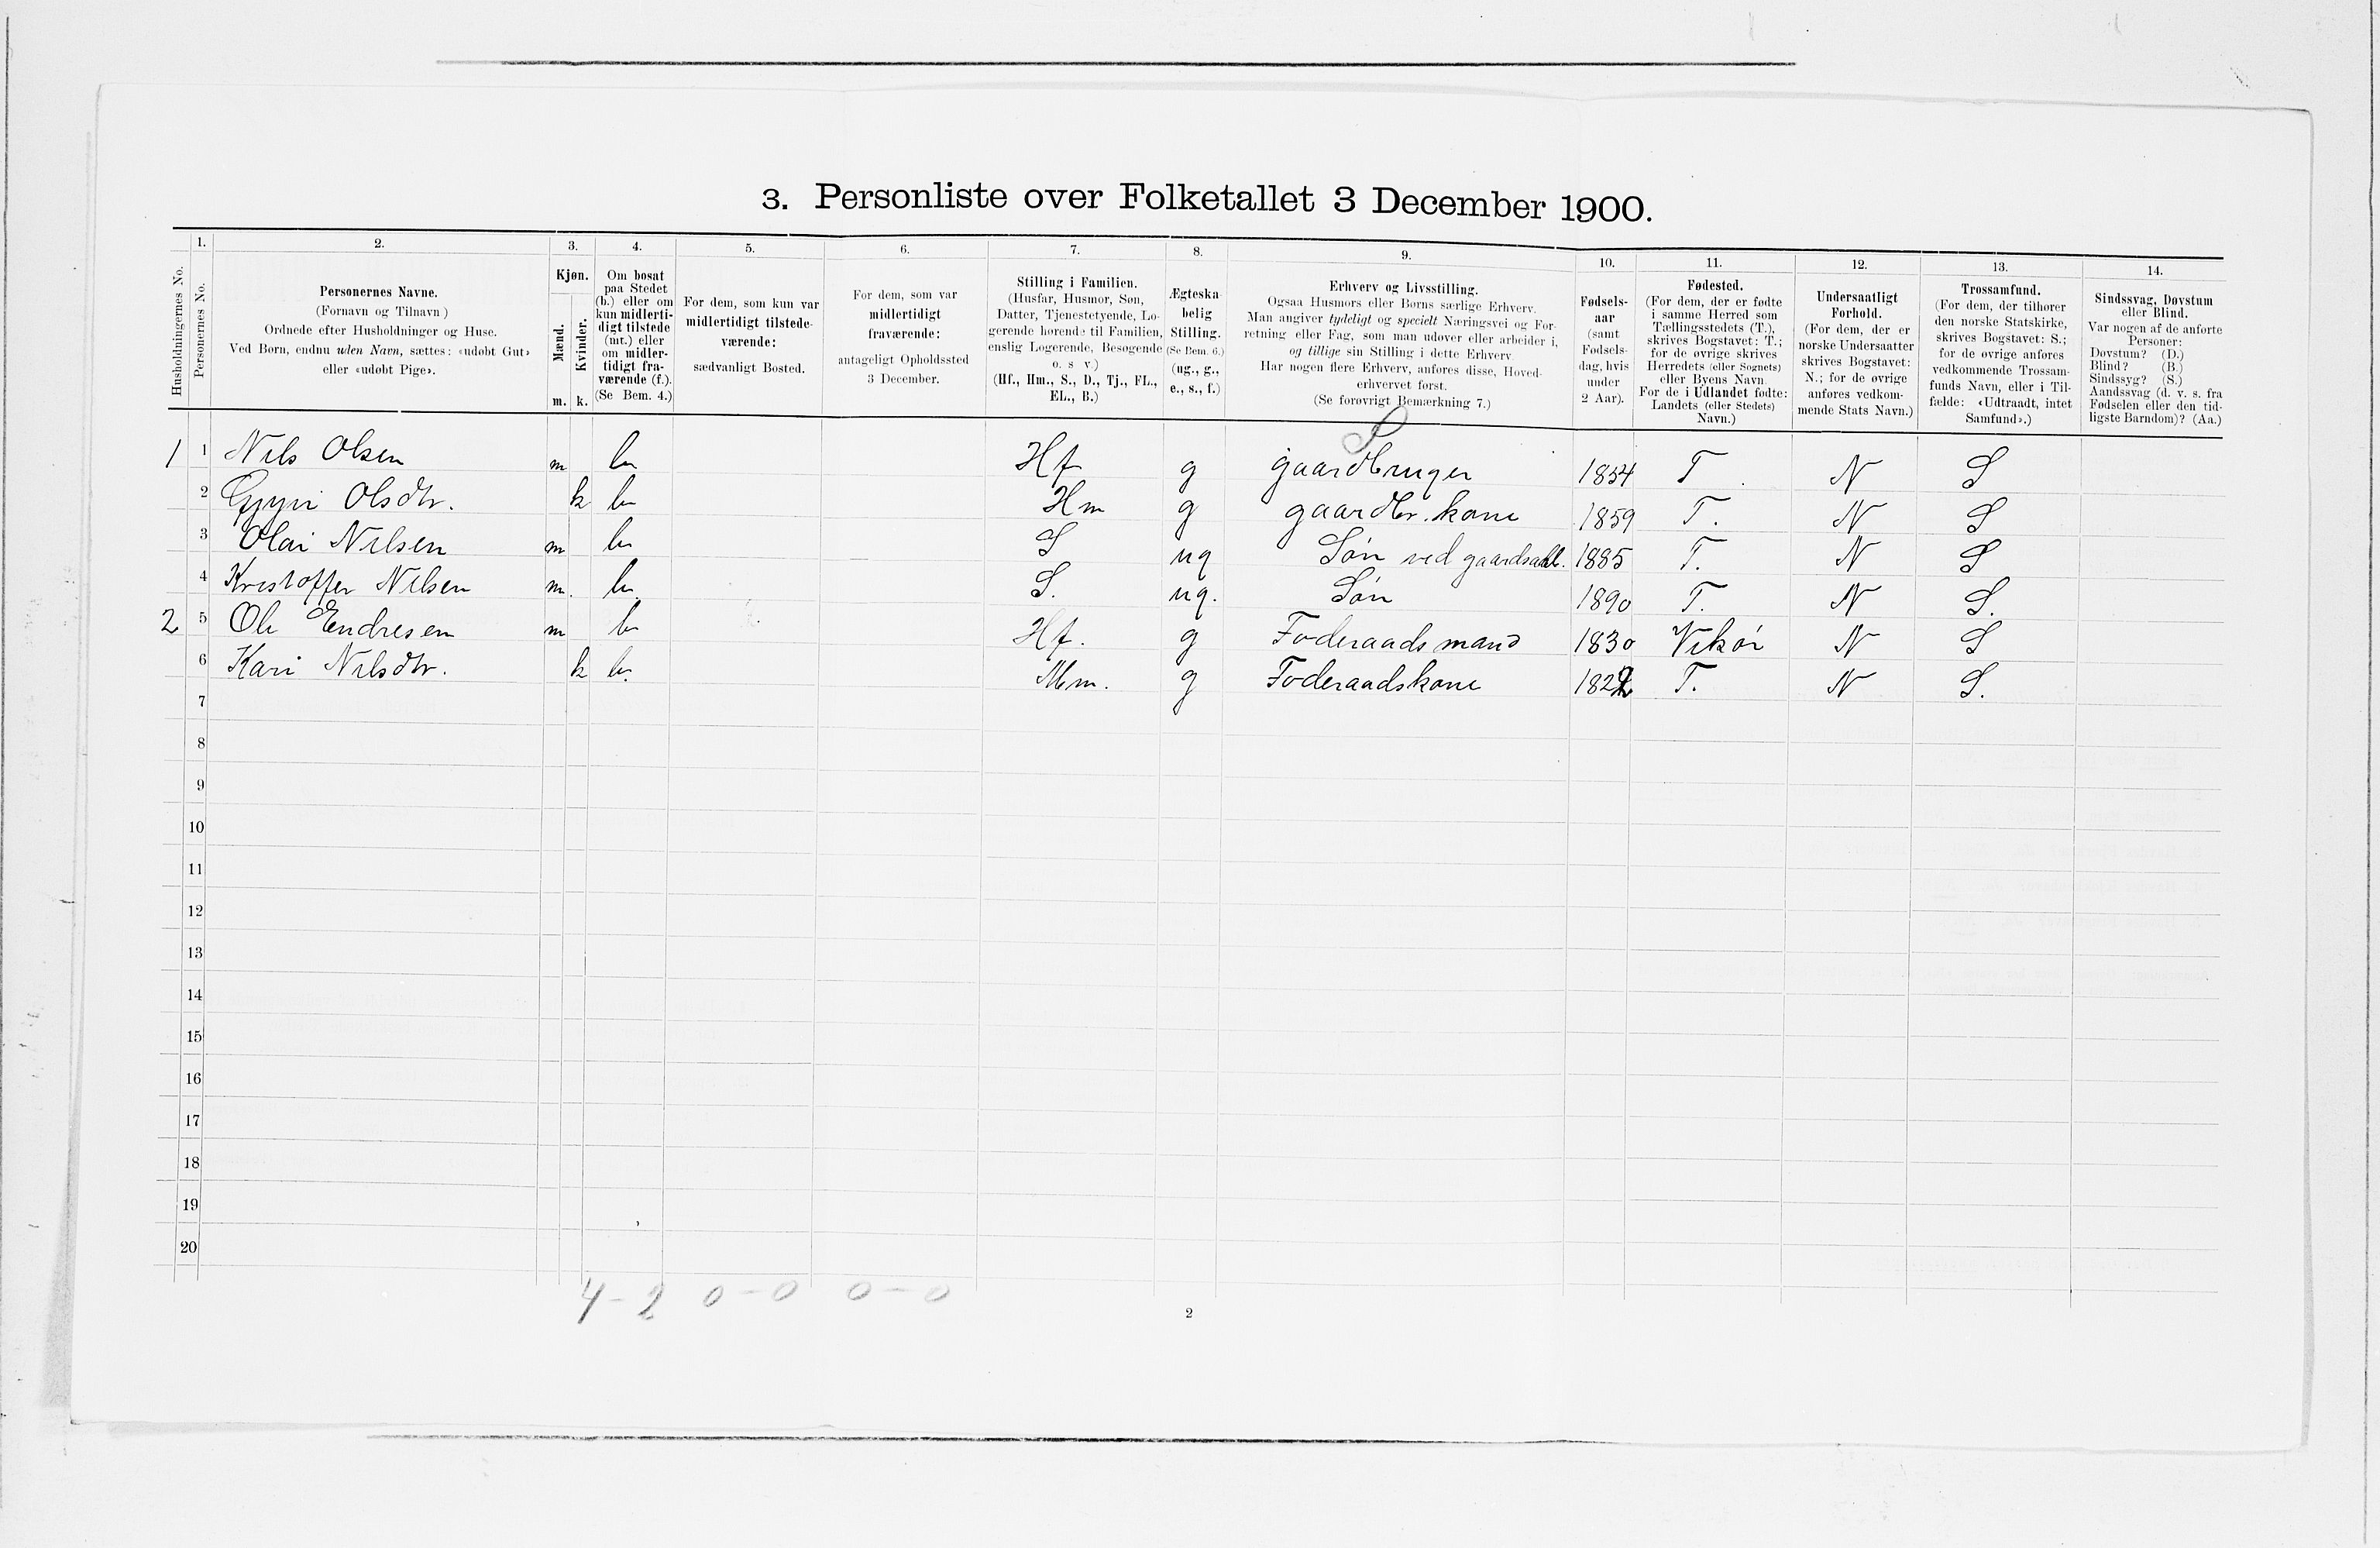 3. Personliste over Folketallet 3 December 1900.
1. 2. 3. 4. 5. 6. 7. 8. 9. 10. 11. 12. 13. 14.
Husholdningernes No.
Personernes No.
Personernes Navne.
(Fornavn og Tilnavn)
Ordnede efter Husholdninger og Huse.
Ved Børn, endnu uden Navn, sættes: «udøbt Gut»
eller «udøbt Pige».
Kjøn.
Mænd.
Kvinder.
m. k.
Om bosat
paa Stedet
(b.) eller om
kun midlerti-
digt tilstede
(mt.) eller
om midler-
tidigt fra-
værende (f.).
(Se Bem. 4.)
For dem, som kun var
midlertidigt tilstede-
værende:
sædvanligt Bosted.
For dem, som var
midlertidigt
fraværende:
antageligt Opholdssted
3 December.
Stilling i Familien.
(Husfar, Husmor, Søn,
Datter, Tjenestetyende, Lo-
gerende hørende til Familien,
enslig Logerende, Besøgende
o. s. v.)
(Hf., Hm., S., D., Tj., FL.,
EL., B.)
Ægteska-
belig
Stilling.
(Se Bem. 6.)
(ug., g.,
e., s., f.)
Erhverv og Livsstilling.
Ogsaa Husmors eller Børns særlige Erhverv.
Man angiver tydeligt og specielt Næringsvei og For-
retning eller Fag, som man udøver eller arbeider i,
og tillige sin Stilling i dette Erhverv.
Har nogen flere Erhverv, anføres disse, Hoved-
erhvervet først.
(Se forøvrigt Bemærkning 7.)
Fødsels-
aar
(samt
Fødsels-
dag, hvis
under
2 Aar).
Fødested.
(For dem, der er fødte
i samme Herred som
Tællingsstedets (T.),
skrives Bogstavet: T.;
for de øvrige skrives
Herredets (eller Sognets)
eller Byens Navn.
For de i Udlandet fødte:
Landets (eller Stedets)
Navn.)
Undersaatligt
Forhold.
(For dem, der er
norske Undersaatter
skrives Bogstavet:
N.; for de øvrige
anføres vedkom-
mende Stats Navn.)
Trossamfund.
(For dem, der tilhører
den norske Statskirke,
skrives Bogstavet: S.;
for de øvrige anføres
vedkommende Trossam-
funds Navn, eller i Til-
fælde: «Udtraadt, intet
Samfund».)
Sindssvag, Døvstum
eller Blind.
Var nogen af de anførte
Personer:
Døvstum? (D.)
Blind? (B.)
Sindssyg? (S.)
Aandssvag (d. v. s. fra
Fødselen eller den tid-
ligste Barndom)? (Aa.)
1 1 Nils Olsen m b Hf g gaardbruger 1854 T N S
2 Gyri Olsdtr. k b Hm g gaardbr. kone 1859 T. N S
3 Olai Nilsen m b S ug Søn ved gaardsarb. 1885 T. N S
4 Kristoffer Nilsen m. b. S. ug. Søn 1890 T. N S.
2 5 Ole Endresen m b Hf. g Føderaadsmand 1830 Vikør N S
6 Kari Nilsdtr. k b. Hm. g Føderaadskone T. N S.
7
8
9
10
11
12
13
14
15
16
17
18
19
20
4 - 2 0 - 0 0 - 0
2